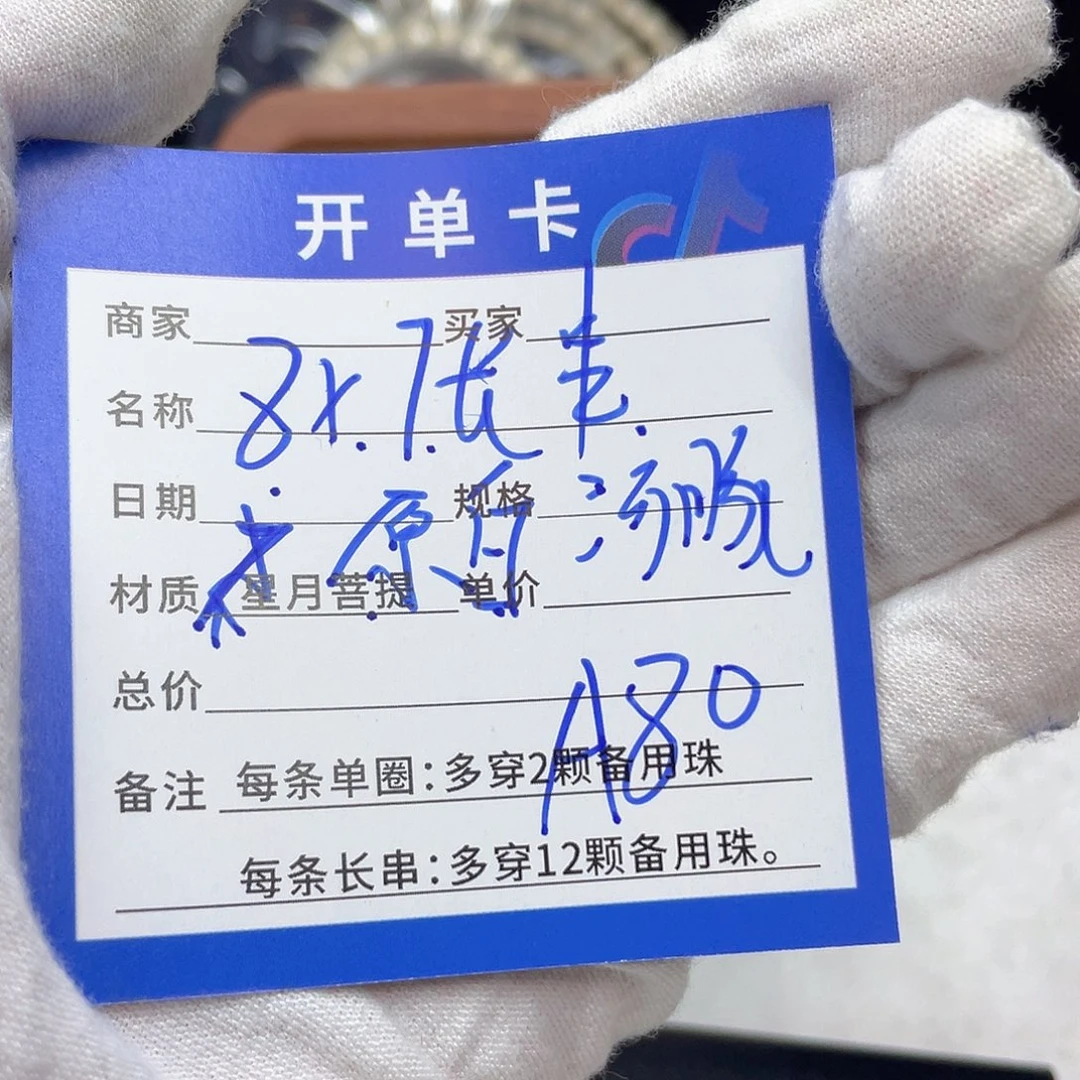 开单卡
商家 买家
8x.7.长羊.
名称
日期 规格
原自
材质 星月菩提 单价
总价
A80
备注 每条单圈:多穿2颗备用珠
每条长串:多穿12颗备用珠。